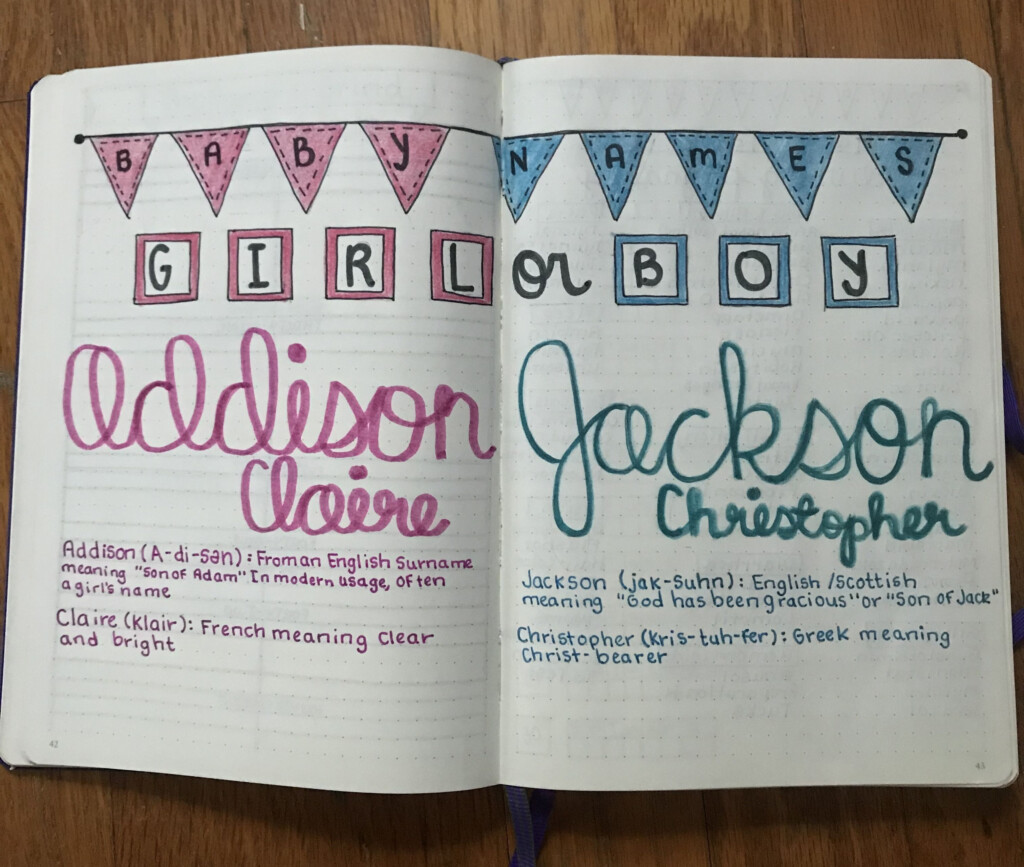 BABY NAMES
GIRL or BOY
Addison
Claire
Addison (A-di-sən): Froman English Surname
meaning "Son of Adam" In modern usage, often
a girl's name
Claire (klair): French meaning clear
and bright
42
Jackson
Christopher
Jackson (jak-suhn): English/Scottish
meaning "God has been gracious" or "Son of Jack"
Christopher (kris-tuh-fer): Greek meaning
Christ-bearer
43